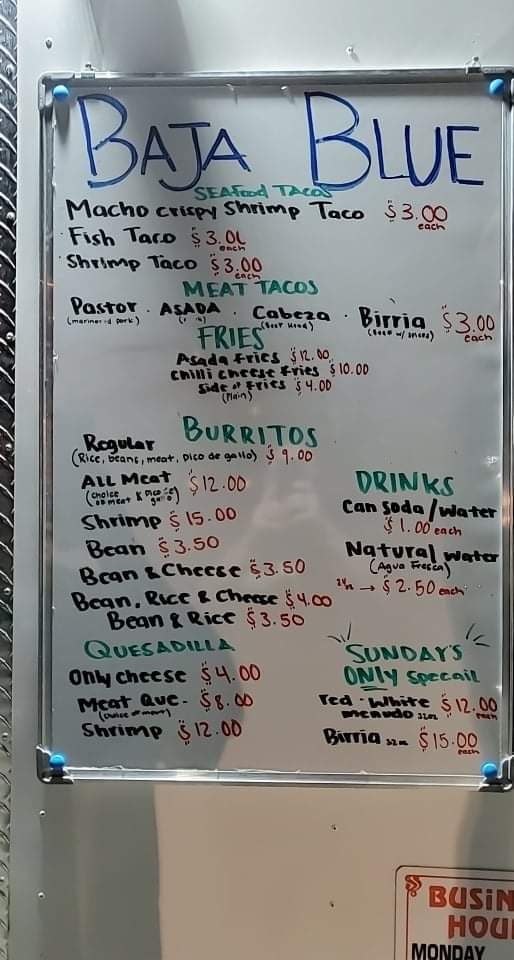 BAJA BLUE
SEAfood TACOS
Macho crispy Shrimp Taco $3.00 each
Fish Taco $3.0 each
Shrimp Taco $3.00 each
MEAT TACOS
Pastor · ASADA · Cabeza · Birria $3.00 each
FRIES
Asada fries $12.00
chilli cheese fries $10.00
Side of fries $4.00
(Plain)
BURRITOS
Regular
(Rice, beans, meat, pico de gallo) $9.00
ALL Meat $12.00
(choice
Shrimp $15.00
Bean $3.50
Bean & Cheese $3.50
Bean, Rice & Cheese $4.00
Bean & Rice $3.50
QUESADILLA
Only cheese $4.00
Meat Que. $8.00
Shrimp $12.00
DRINKS
Can soda/Water
$1.00 each
Natural water
(Agua Fresca)
→ $2.50 each
SUNDAY'S
ONLY Specail
red · White $12.00 each
menudo 32oz
Birria 32oz $15.00 each
BUSIN
HOU
MONDAY